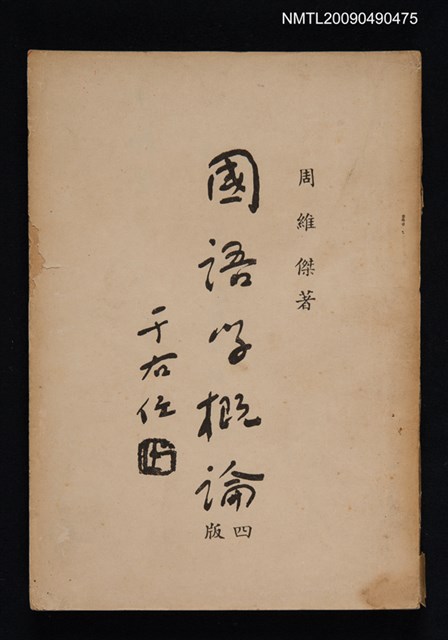 NMTL20090490475
周維傑著
國語学概論
四版
于右任